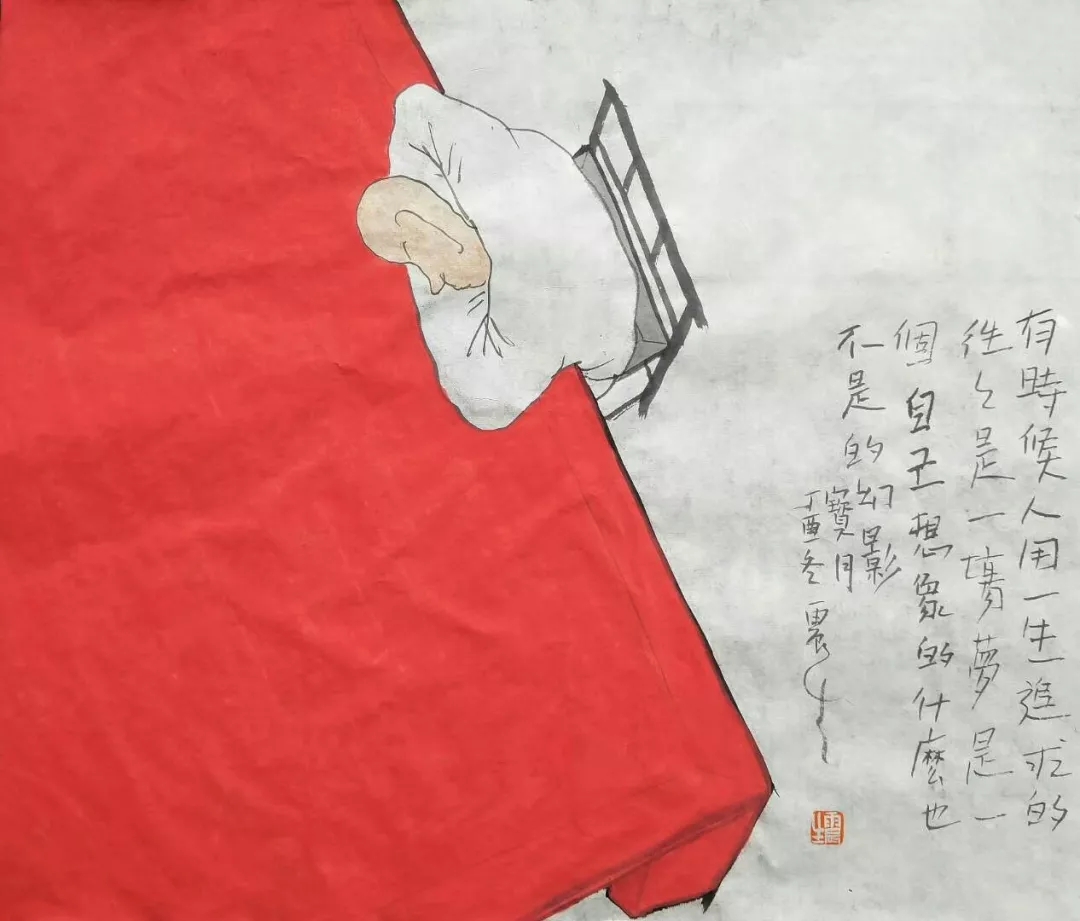 有時候人用一生追求的
往々是一場夢是一
個自己想象的什麼也
不是的幻影
寶月
丁酉冬